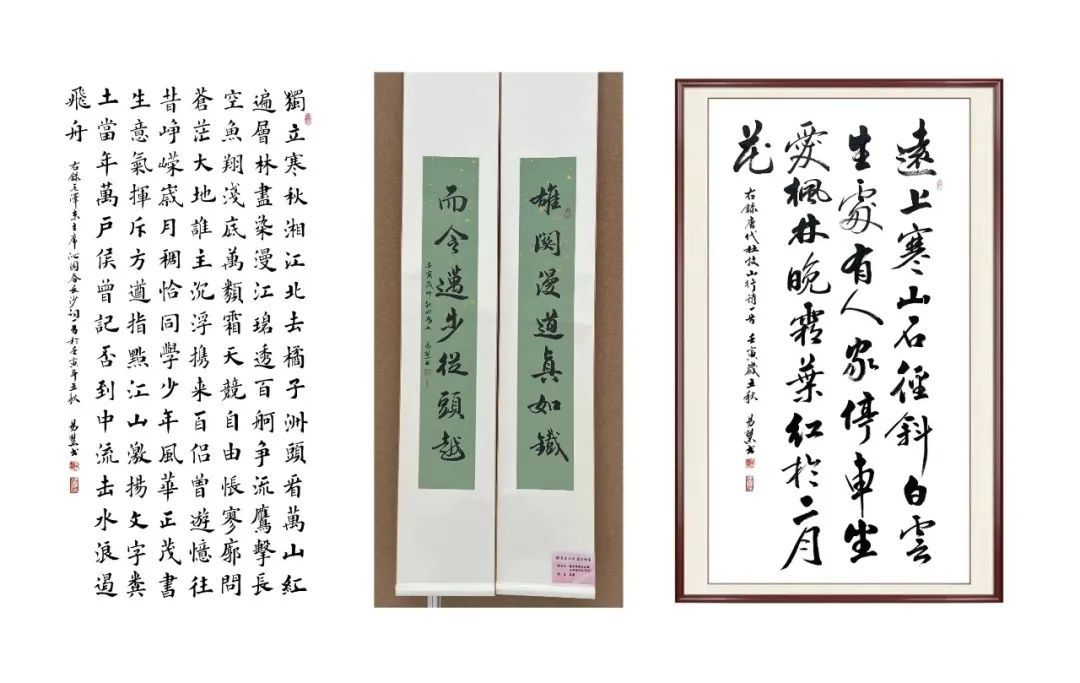 獨立寒秋湘江北去橘子洲頭看萬山紅
遍層林盡染漫江碧透百舸争流鷹擊長
空魚翔淺底萬類霜天競自由悵寥廓問
蒼茫大地誰主沉浮携来百侣曾遊憶往
昔崢嶸歲月稠恰同學少年風華正茂書
生意氣揮斥方遒指點江山激揚文字糞
土當年萬户侯曾記否到中流击水浪遏
飛舟
右錄毛澤東主席沁園春長沙詞一首於壬寅年立秋 易慧书
雄関漫道真如鐵
而今邁步從頭越
壬寅歲 易慧书
遠上寒山石徑斜白雲
生處有人家停車坐
愛楓林晚霜葉紅於二月
花
右錄唐代杜牧山行詩一首 壬寅歲立秋 易慧书